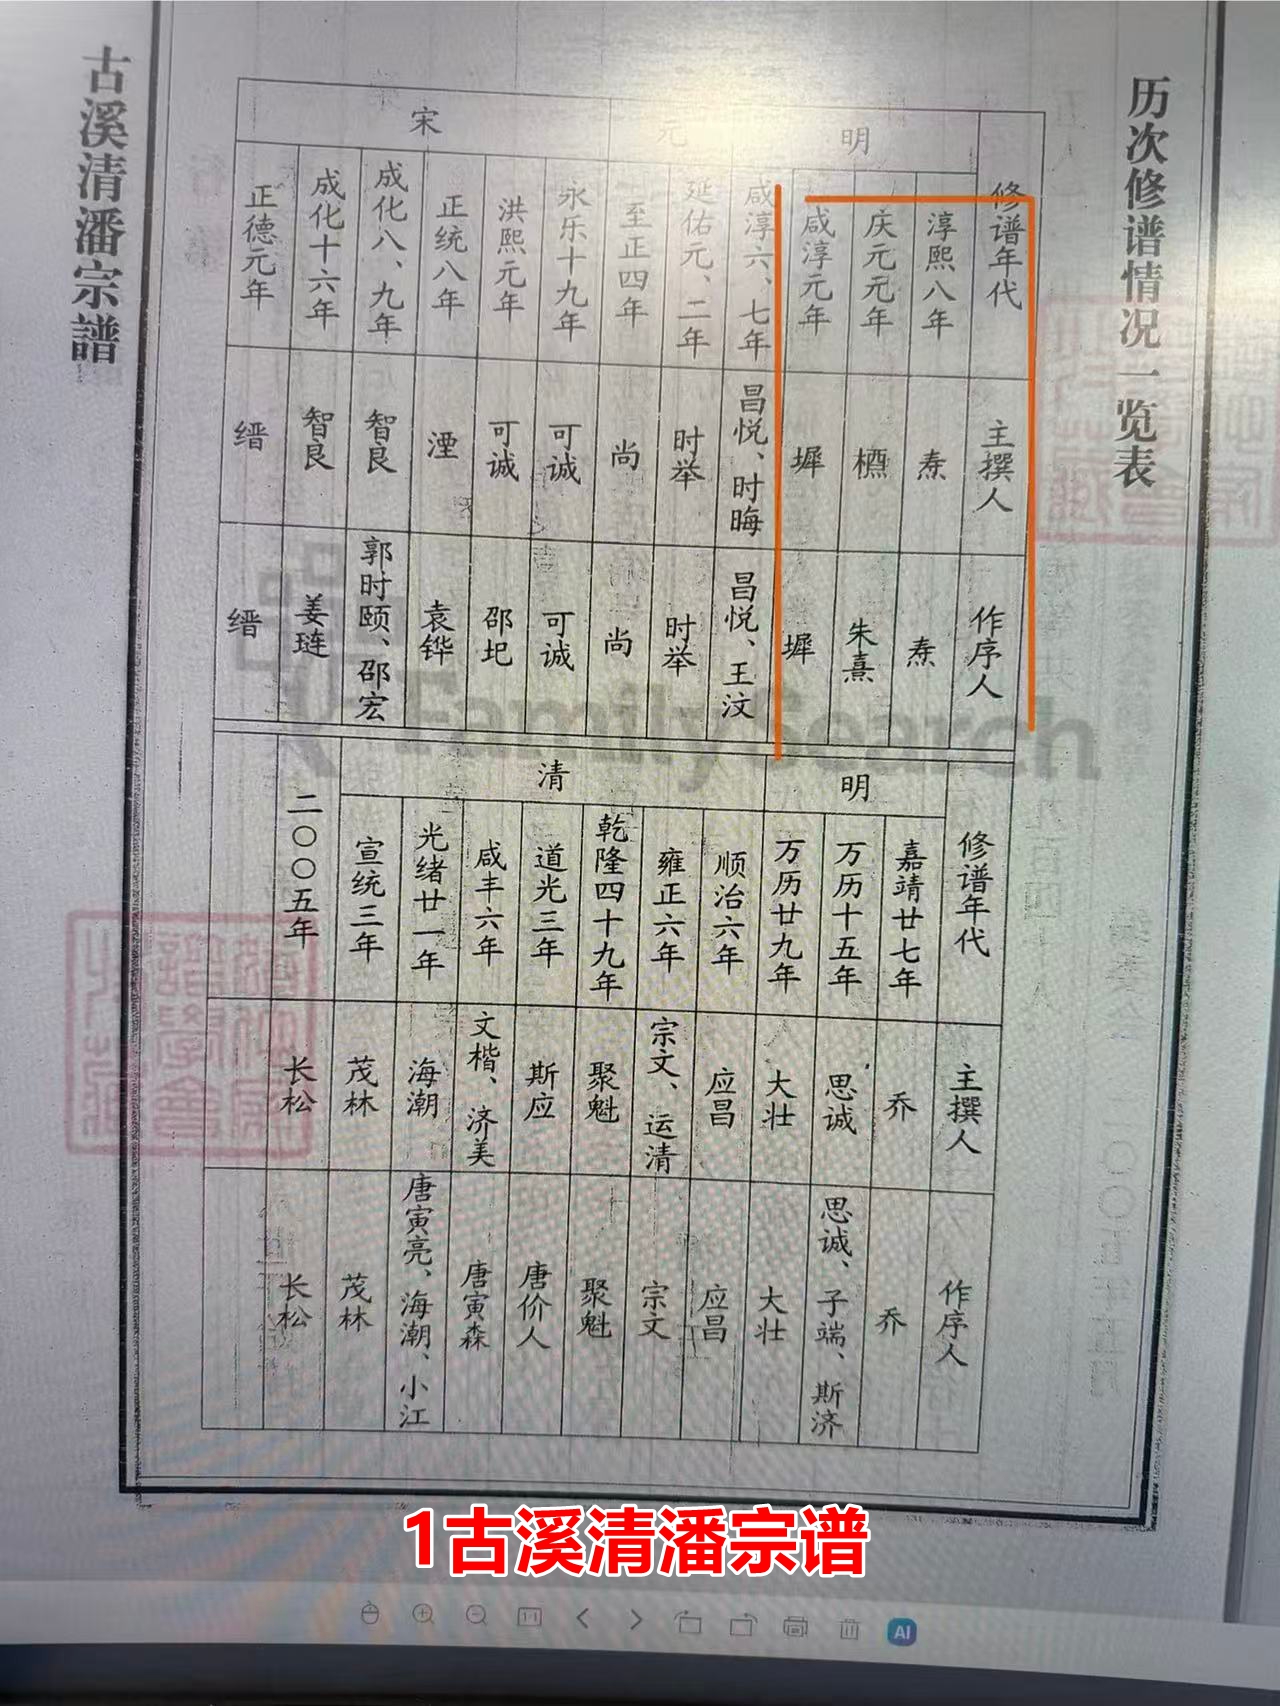 历次修谱情况一览表
古溪清潘宗譜
明
元
宋
修谱年代
淳熙八年
庆元元年
咸淳元年
咸淳六、七年
延佑元、二年
至正四年
永乐十九年
洪熙元年
正统八年
成化八、九年
成化十六年
正德元年
主撰人
焘
樗
墀
昌悦、时晦
时举
尚
可诚
可诚
湮
智良
智良
缙
作序人
焘
朱熹
墀
昌悦、王汶
时举
尚
可诚
邵圯
袁铧
郭时颐、邵宏
姜琏
缙
明
清
修谱年代
嘉靖廿七年
万历十五年
万历廿九年
顺治六年
雍正六年
乾隆四十九年
道光三年
咸丰六年
光绪廿一年
宣统三年
二〇〇五年
主撰人
乔
思诚
大壮
应昌
宗文、运清
聚魁
斯应
文楷、济美
海潮
茂林
长松
作序人
乔
思诚、子端、斯济
大壮
应昌
宗文
聚魁
唐价人
唐寅森
唐寅亮、海潮、小江
茂林
长松
FamilySearch
1古溪清潘宗谱
1:1
AI